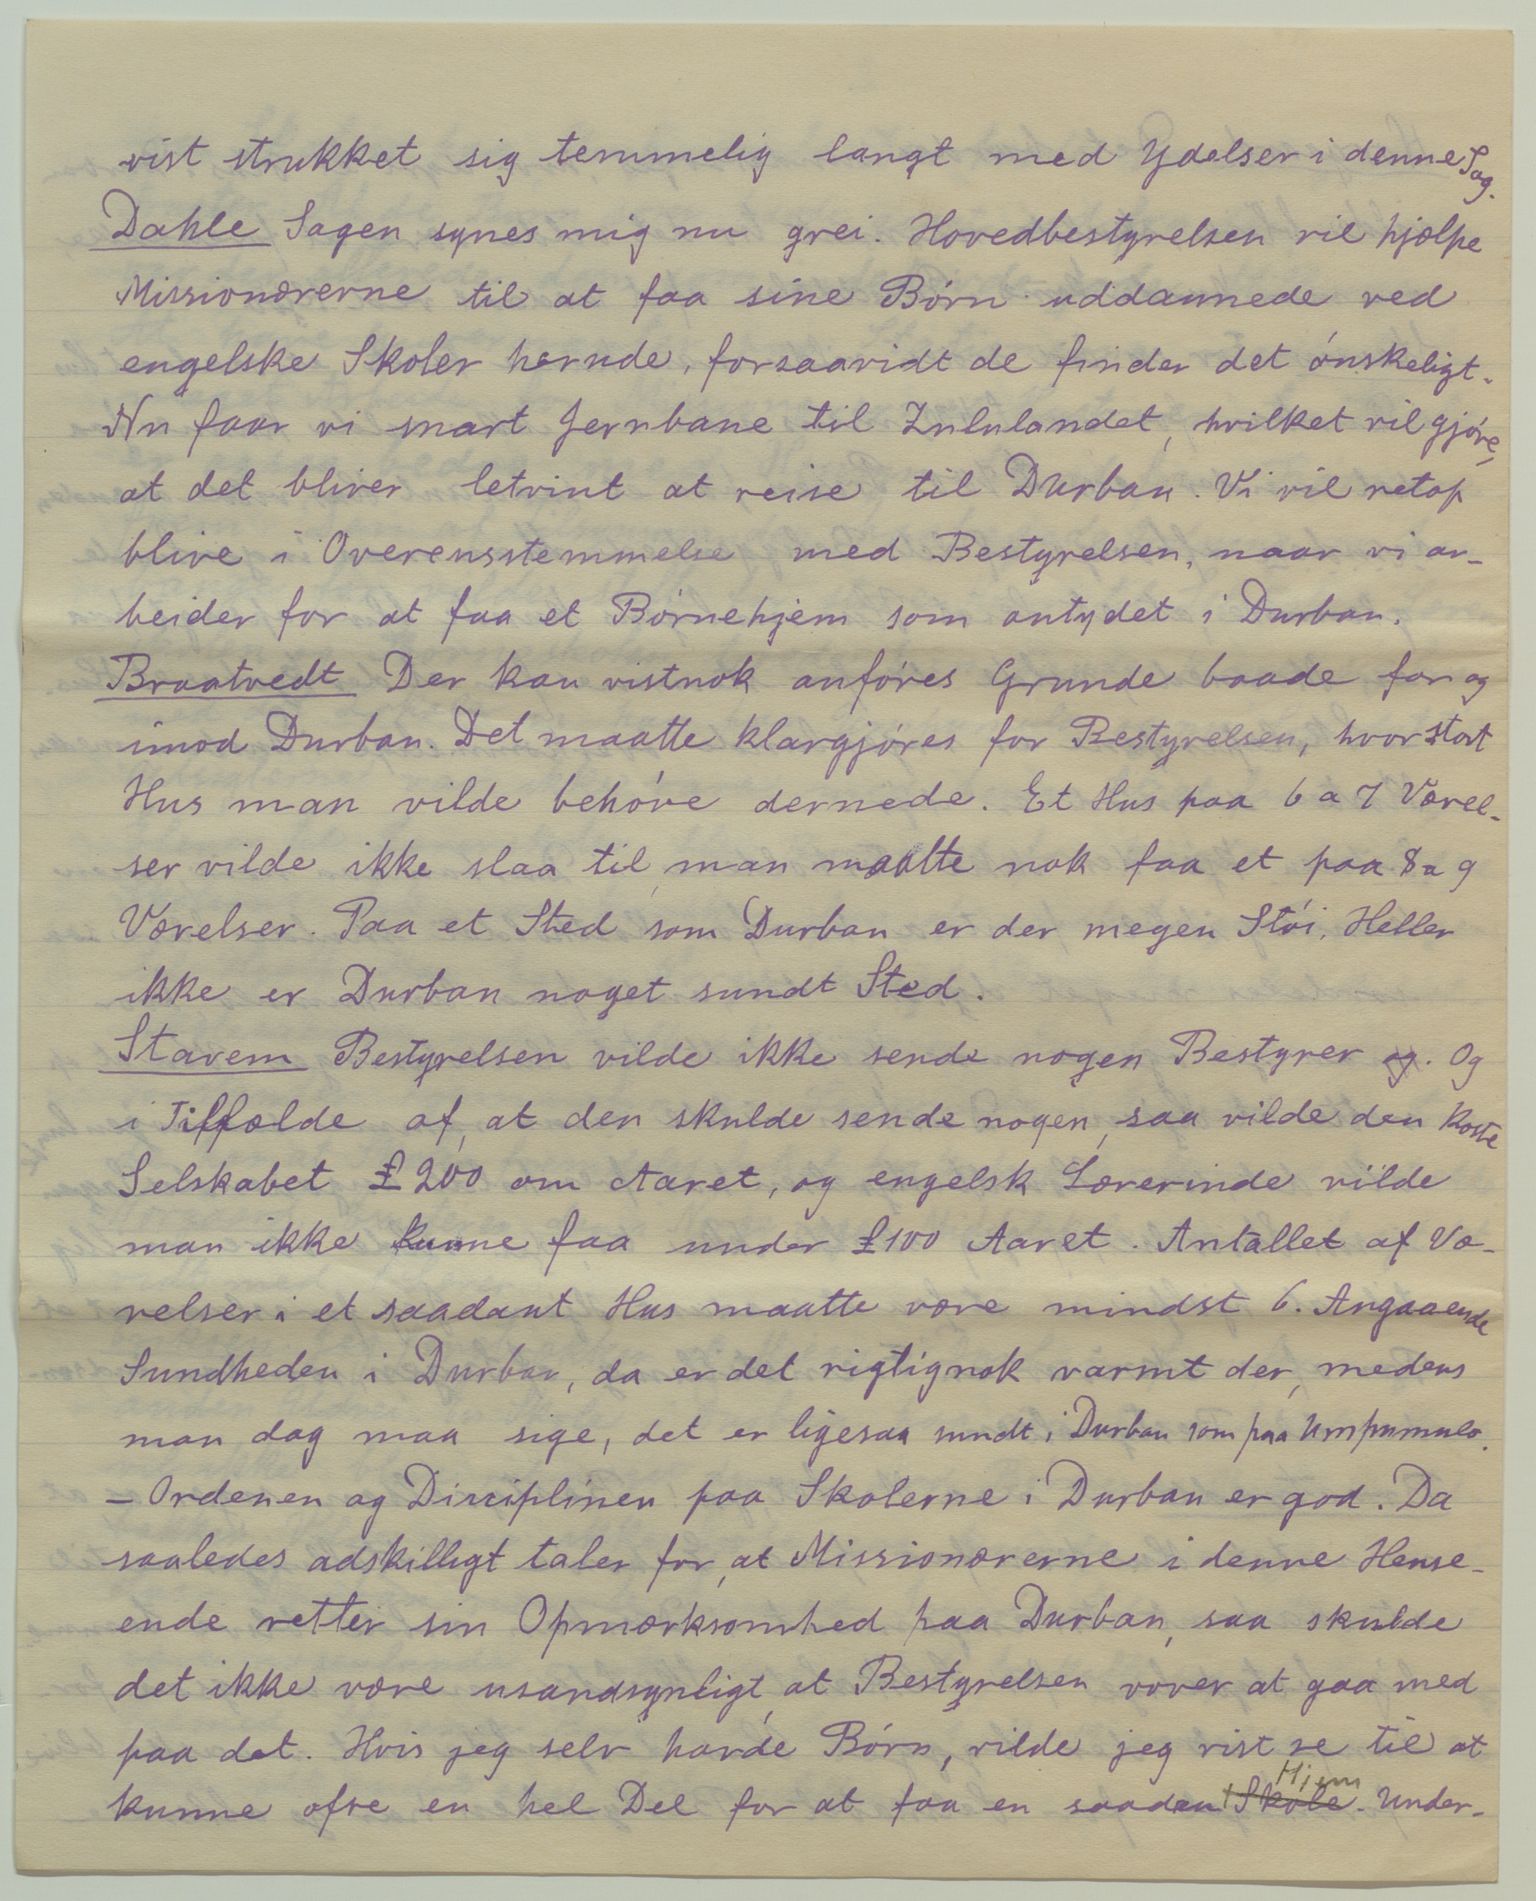 vist strukket sig temmelig langt med Ydelser i denne Sag.
Dahle Sagen synes mig nu grei. Hovedbestyrelsen vil hjælpe
Missionærerne til at faa sine Børn uddannede ved
engelske Skoler hernde, forsaavidt de finder det ønskeligt.
Nu faar vi snart Jernbane til Zululandet, hvilket vil gjøre,
at det bliver letvint at reise til Durban. Vi vil netop
blive i Overensstemmelse med Bestyrelsen, naar vi ar-
beider for at faa et Børnehjem som antydet i Durban.
Braatvedt Der kan vistnok anføres Grunde baade for og
imod Durban. Det maatte klargjøres for Bestyrelsen, hvor stort
Hus man vilde behøve dernede. Et Hus paa 6 a 7 Værel-
ser vilde ikke slaa til, man maatte nok faa et paa 8 a 9
Værelser. Paa et Sted som Durban er der megen Støi, Heller
ikke er Durban noget sundt Sted.
Stavem Bestyrelsen vilde ikke sende nogen Bestyrer og. Og
i Tilfælde af, at den skulde sende nogen, saa vilde den koste
Selskabet £200 om Aaret, og engelsk Lærerinde vilde
man ikke kunne faa under £100 Aaret. Antallet af Væ-
relser i et saadant Hus maatte være mindst 6. Angaaende
Sundheden i Durban, da er det rigtignok varmt der, medens
man dog maa sige, det er ligesaa sundt i Durban som paa Umpumulo.
- Ordenen og Disciplinen paa Skolerne i Durban er god. Da
saaledes adskilligt taler for, at Missionærerne i denne Hense-
ende retter sin Opmærksomhed paa Durban, saa skulde
det ikke være usandsynligt, at Bestyrelsen vover at gaa med
paa det. Hvis jeg selv havde Børn, vilde jeg vist se til at
kunne ofre en hel Del for at faa en saadan Skole Hjem. Under-